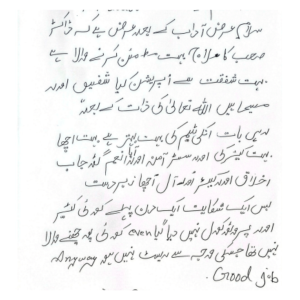 سلام عرض آداب کے بعد عرض ہے کہ ڈاکٹر
صاحب کا علاج بہت مطمئن کرنے والا ہے
بہت شفقت سے آپریشن کیا شفیق اور
مسیحا ہیں اللہ تعالیٰ کی ذات کے بعد
رہی بات انکی ٹیم کی بہت بہتر ہے بہت اچھا
بہت کیئر کی اور سسٹر آمنہ اور انجم
اخلاق اور کیئر اور آل اچھا زبردست
بس ایک شکایت ایک دن پہلے کوئی کیئر
اور پروٹوکول نہیں دیا گیا even کوئی پوچھنے والا
نہیں تھا جسکی وجہ سے نہیں Anyway
Good job.